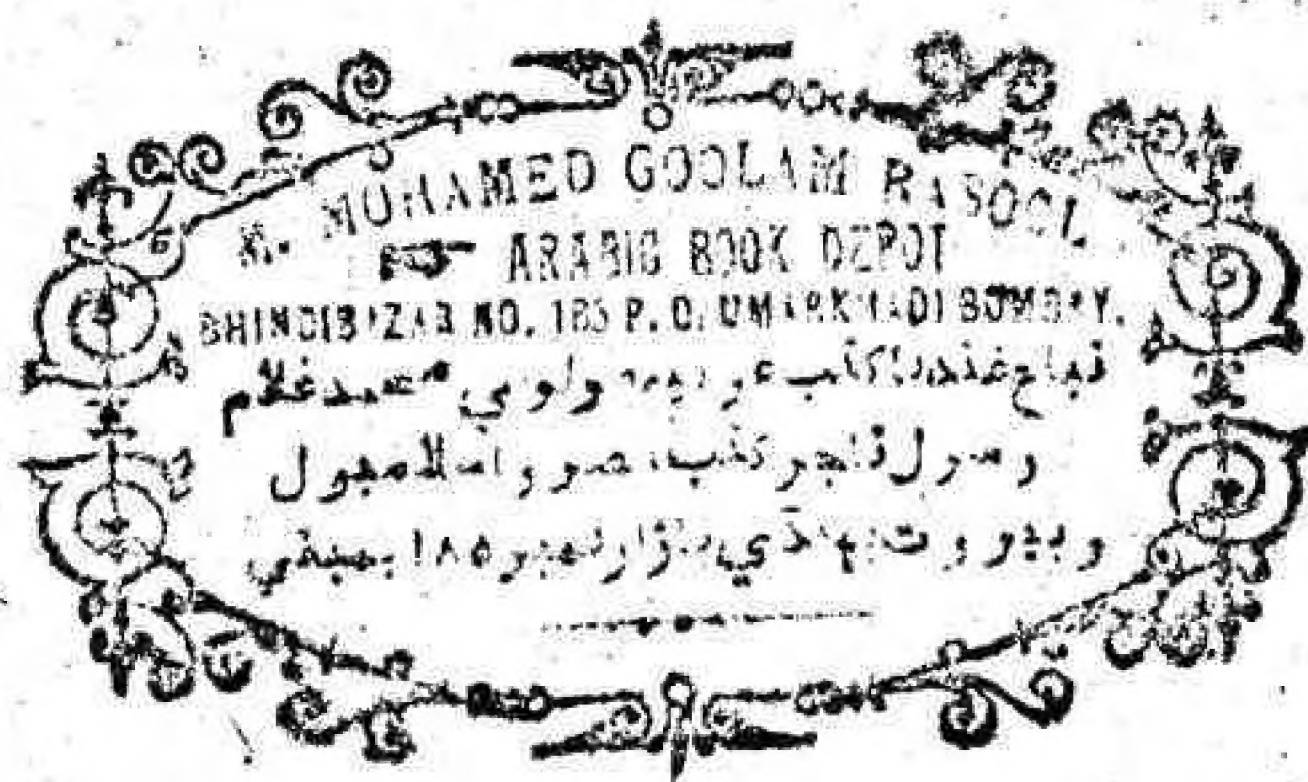 MOHAMED GOOLAM RASOOL
ARABIC BOOK DEPOT
BHINDIBAZAR NO. 185 P. O. UMARKHADI BOMBAY.
تباع عند كتب عربيه مولوي محمد غلام
رسول تاجر كتب مصر و اسلامبول
و بيروت بهنڈي بازار نمبر ۱۸۵ بمبئي